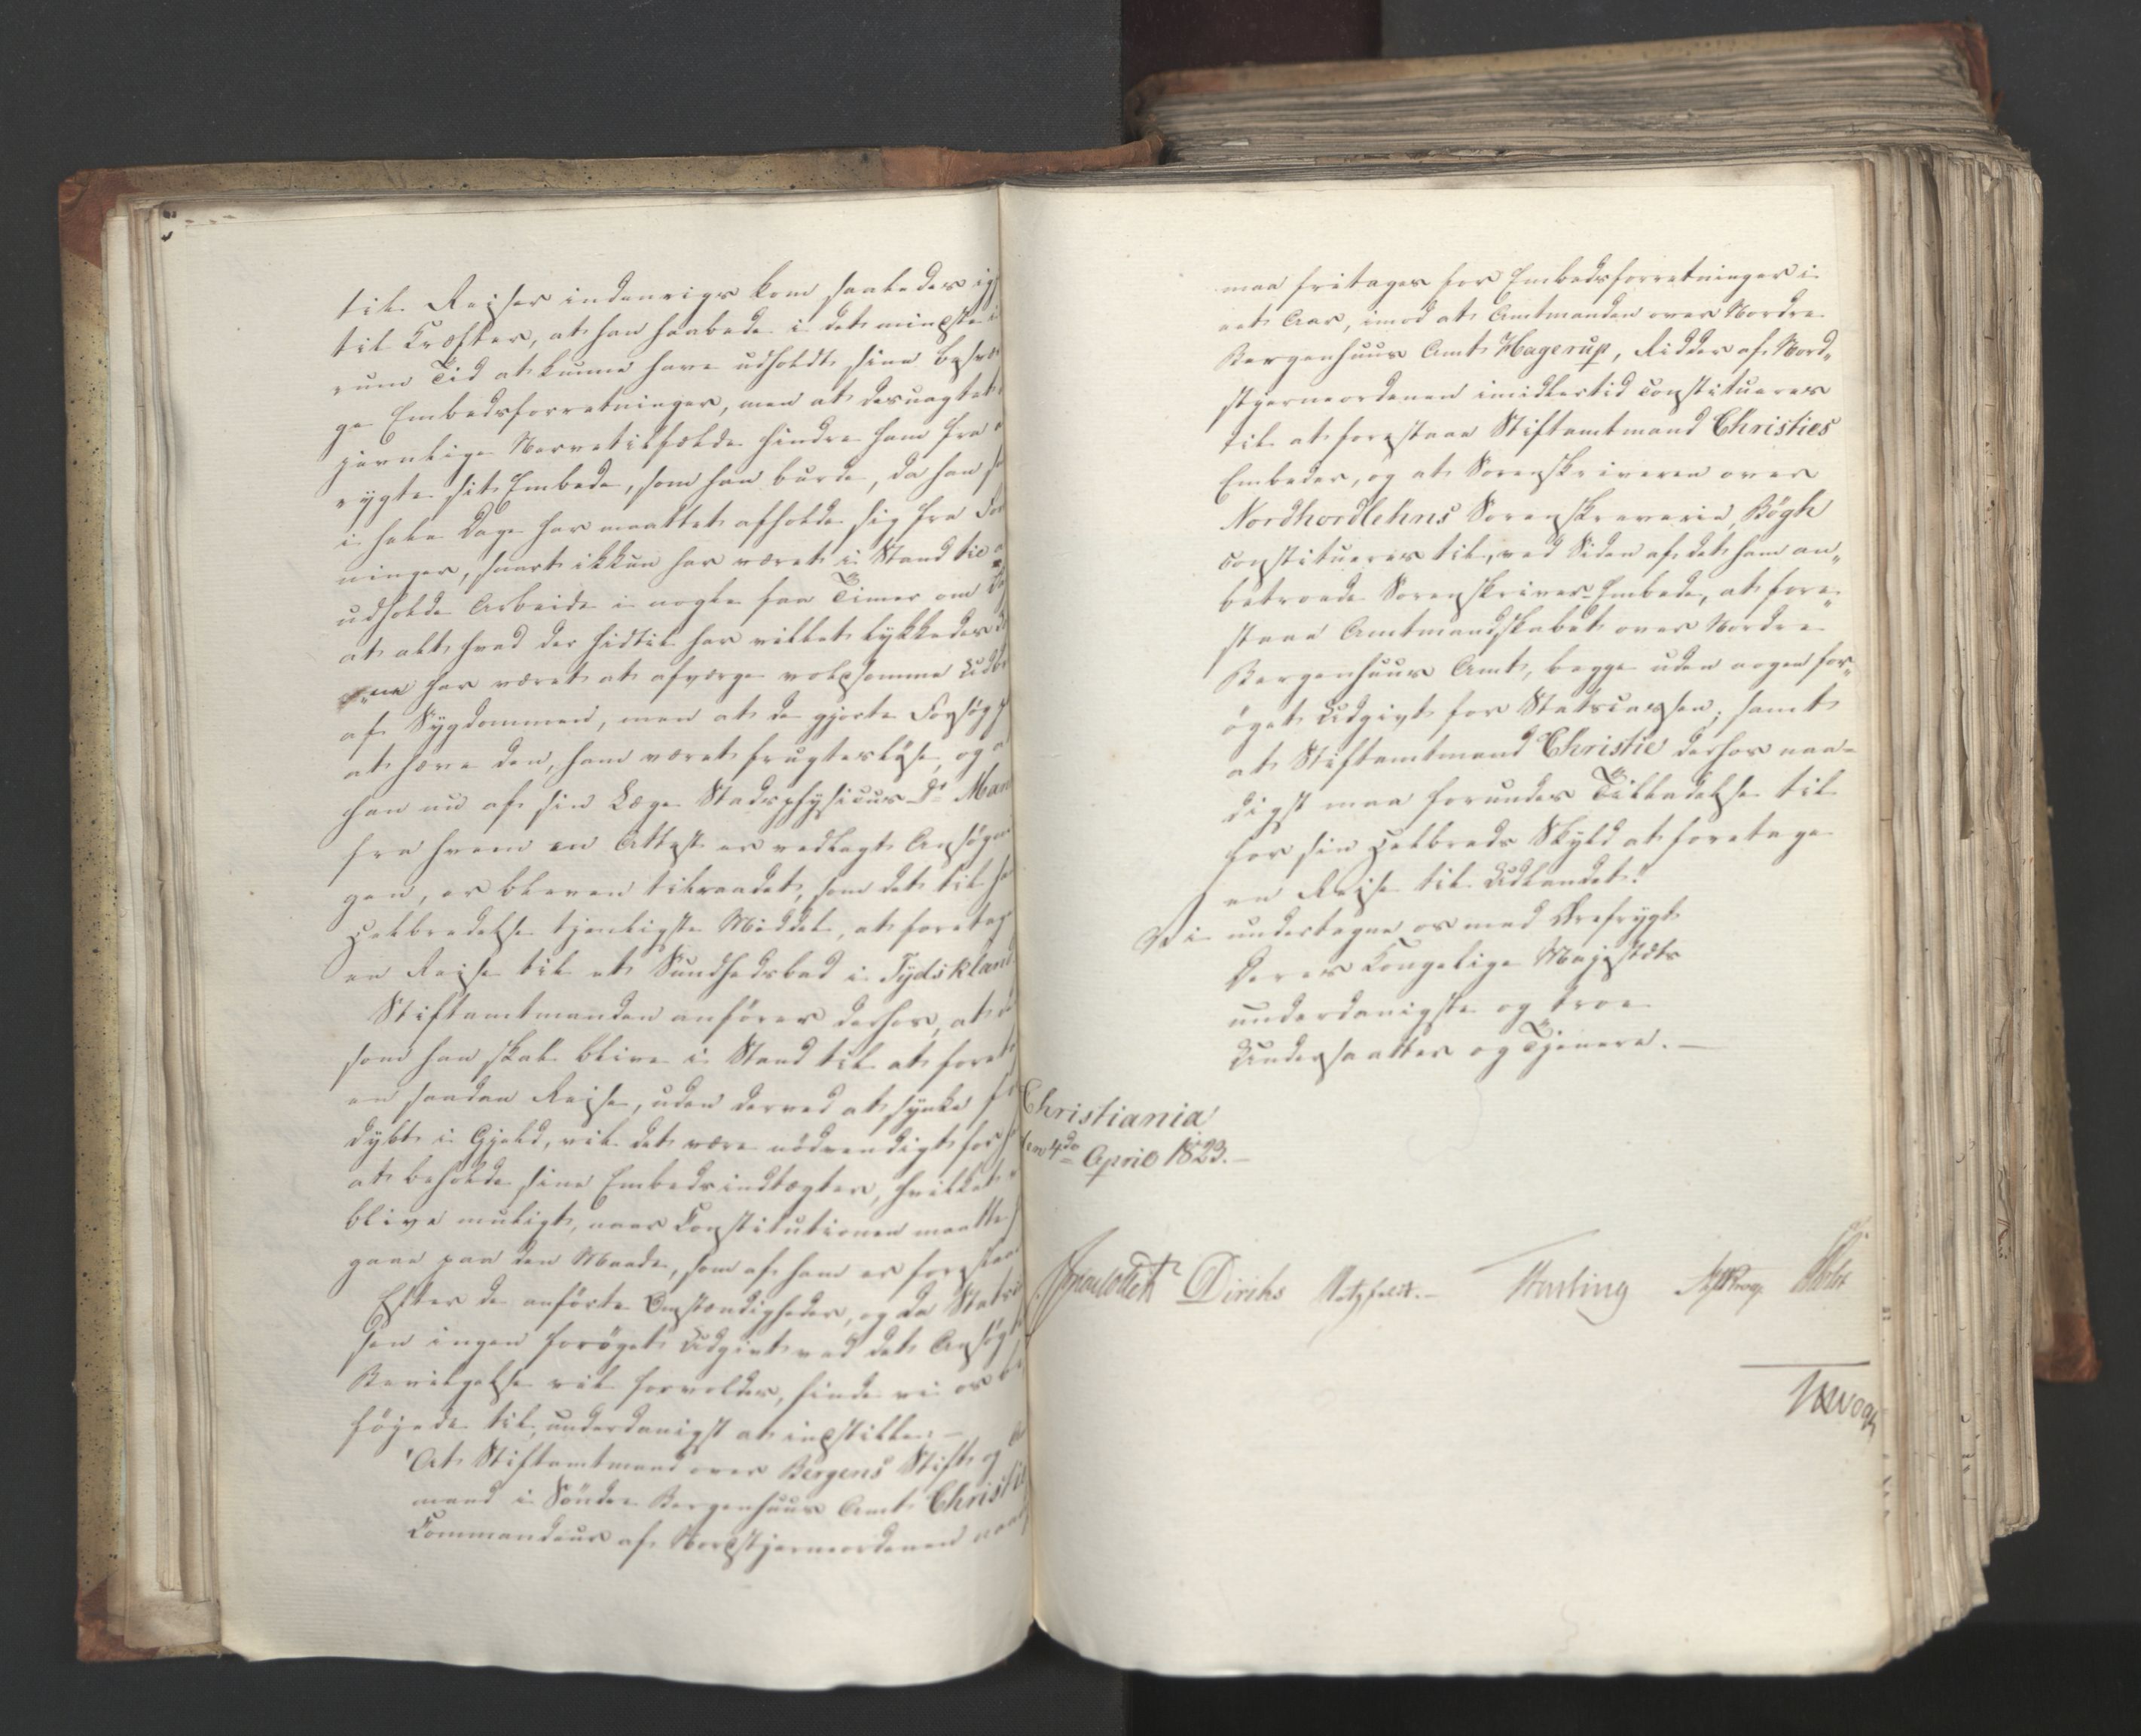 til Reiser indenrigs kom saaledes ig
til Kræfter, at han haabede i det mindste i
rum Tid at kunne have udholdt sine besvæ
ge Embedsforretninger, men at desuagtet
jævnlige Nervetilfælde hindre ham fra
rygte sit Embede, som han burde, da han
i hele Dage har maattet afholde sig fra For
ninger, snart ikkun har været i Stand til
udholde Arbeide i nogle faa Timer om Da
at alt hvad der hidtil har villet lykkedes
har været at afværge voldsomme Udbr
af Sygdommen, men at de gjorte Forsøg p
at hæve den, have været frugtesløse, og a
han nu af sin Læge Stadsphysicus Dr Man
fra hvem en Attest er vedlagt Ansøgni
gen, er bleven tilraadet, som det til ha
Helbredelse tjenligste Middel, at foretag
en Reise til et Sundhedsbad i Tydskland
Stiftamtmanden anfører derhos, at
som han skal blive i Stand til at foret
en saadan Reise, uden derved at synke fo
dybt i Gjeld, vil det være nødvendigt for h
at beholde sine Embedsindtægter, hvilket
blive muligt, naar Constitutionen maatte
gaae paa den Maade, som af ham er foreslaae
Efter de anførte Omstændigheder, og da Statsc
sen ingen forøget Udgivt ved det Ansøgte
Bevilgelse vil forvoldes, finde vi os
føiede til, underdanigst at indstille:—
"At Stiftamtmand over Bergens Stift og A
mand i Søndre Bergenhuus Amt Christie
Commandeur af Nordstjerneordenen naad
maa fritages for Embedsforretninger i
eet Aar, imod at Amtmanden over Nordre
Bergenhuus Amt Hagerup, Ridder af Nord„
stjerneordenen imidlertid constitueres
til at forestaae Stiftamtmand Christies
Embeder, og at Sorenskriveren over
Nordhordlehns Sorenskriverie, Bøgh
constitueres til, ved Siden af det ham an„
betroede Sorenskriver-Embede, at fore„
staae Amtmandskabet over Nordre
Bergenhuus Amt, begge uden nogen for„
øget Udgivt for Statscassen; samt
at Stiftamtmand Christie derhos naa-
digst maa forundes Tilladelse til
for sin Helbreds Skyld at foretage
en Reise til Udlandet."
Vi undertegne os med Ærefrygt
Deres Kongelige Majestæts
underdanigste og troe
Undersaatter og Tjenere.—
Christiania
den 4de April 1823.—
Diriks Motzfeldt.— Krog